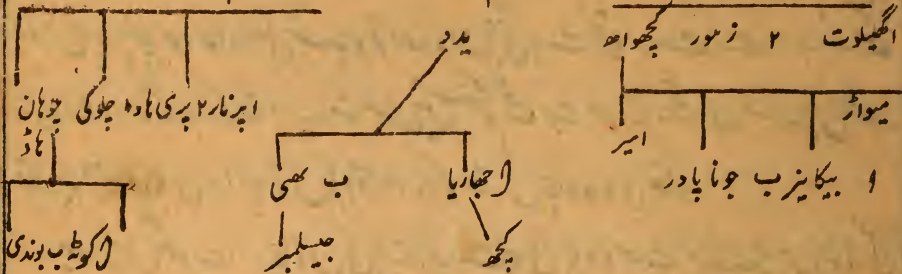 اگھیلوت ۲ زمور کچھواھ
میواڑ
امیر
ا بیکاینرب جونا پادر
یدد
اجھاریا
ب بھی
کچھ
جیسلمیر
اپرنار۲ پری ہادہ چلوکی چوہان
ہاڈ
اکوٹہ ب بوندی